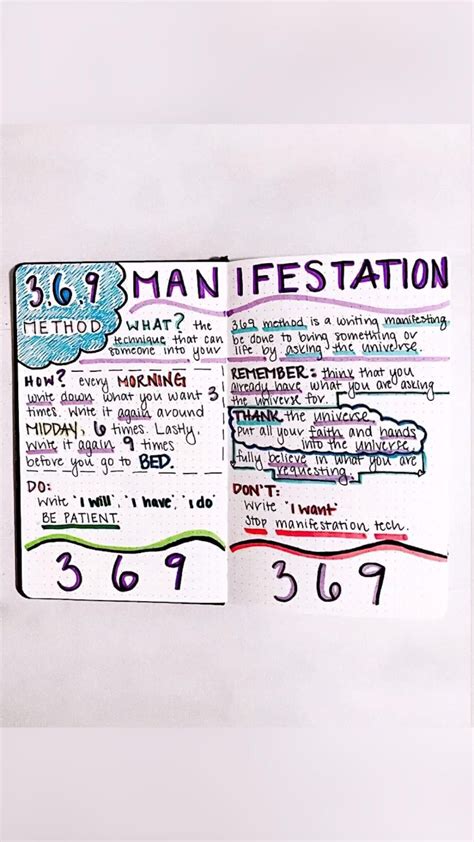 3.6.9 MANIFESTATION
METHOD
WHAT? the 369 method is a writing manifesting
technique that can be done to bring something or
someone into your life by asking the universe.
HOW? every MORNING
write down what you want 3
times. Write it again around
MIDDAY, 6 times. Lastly,
write it again 9 times
before you go to BED.
DO:
Write 'I will', 'I have', 'I do'
BE PATIENT.
3 6 9
REMEMBER: think that you
already have what you are asking
the universe for.
THANK the universe
Put all your faith and hands
into the universe
fully believe in what you are
requesting.
DON'T:
Write 'I want'
Stop manifestation tech.
3 6 9